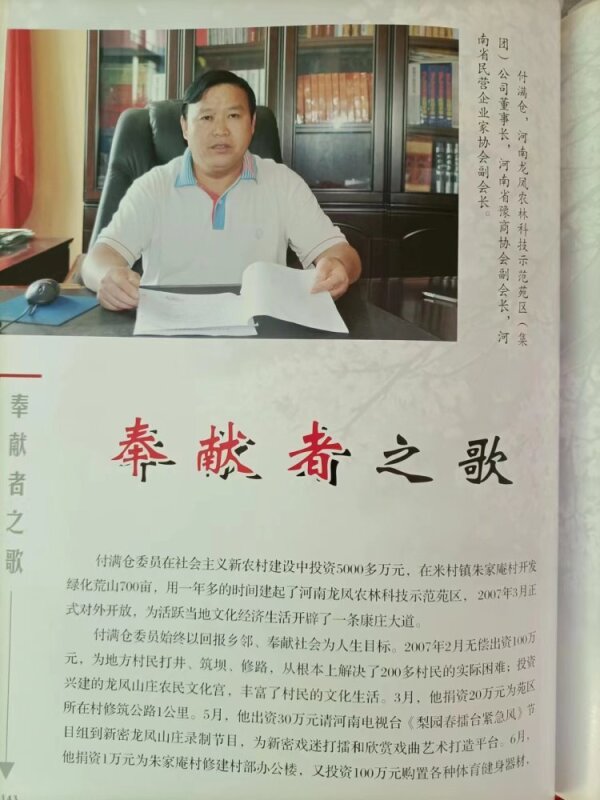 付满仓，河南龙凤农林科技示范苑区（集
团）公司董事长，河南省豫商协会副会长，河
南省民营企业家协会副会长。
奉献者之歌
奉献者之歌
付满仓委员在社会主义新农村建设中投资5000多万元，在米村镇朱家庵村开发
绿化荒山700亩，用一年多的时间建起了河南龙凤农林科技示范苑区，2007年3月正
式对外开放，为活跃当地文化经济生活开辟了一条康庄大道。
付满仓委员始终以回报乡邻、奉献社会为人生目标。2007年2月无偿出资100万
元，为地方村民打井、筑坝、修路，从根本上解决了200多村民的实际困难；投资
兴建的龙凤山庄农民文化宫，丰富了村民的文化生活。3月，他捐资20万元为苑区
所在村修筑公路1公里。5月，他出资30万元请河南电视台《梨园春擂台紧急风》节
目组到新密龙凤山庄录制节目，为新密戏迷打擂和欣赏戏曲艺术打造平台。6月，
他捐资1万元为朱家庵村修建村部办公楼，又投资100万元购置各种体育健身器材，
143